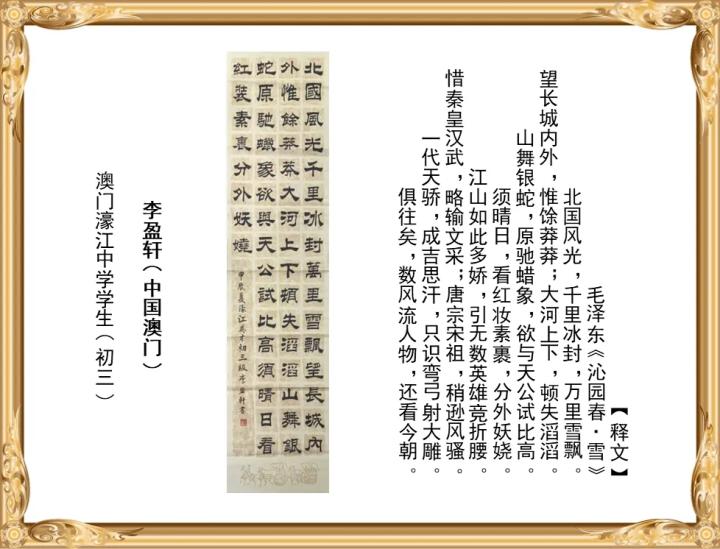 【释文】
毛泽东《沁园春·雪》
北国风光，千里冰封，万里雪飘。
望长城内外，惟馀莽莽；大河上下，顿失滔滔。
山舞银蛇，原驰蜡象，欲与天公试比高。
须晴日，看红妆素裹，分外妖娆。
江山如此多娇，引无数英雄竞折腰。
惜秦皇汉武，略输文采；唐宗宋祖，稍逊风骚。
一代天骄，成吉思汗，只识弯弓射大雕。
俱往矣，数风流人物，还看今朝。
北國風光千里冰封萬里雪飄望長城內
外惟餘莽莽大河上下頓失滔滔山舞銀
蛇原馳蠟象欲與天公試比高須晴日看
紅裝素裹分外妖嬈
甲辰夏濠江英才初三級李盈軒書
李盈轩（中国澳门）
澳门濠江中学学生（初三）